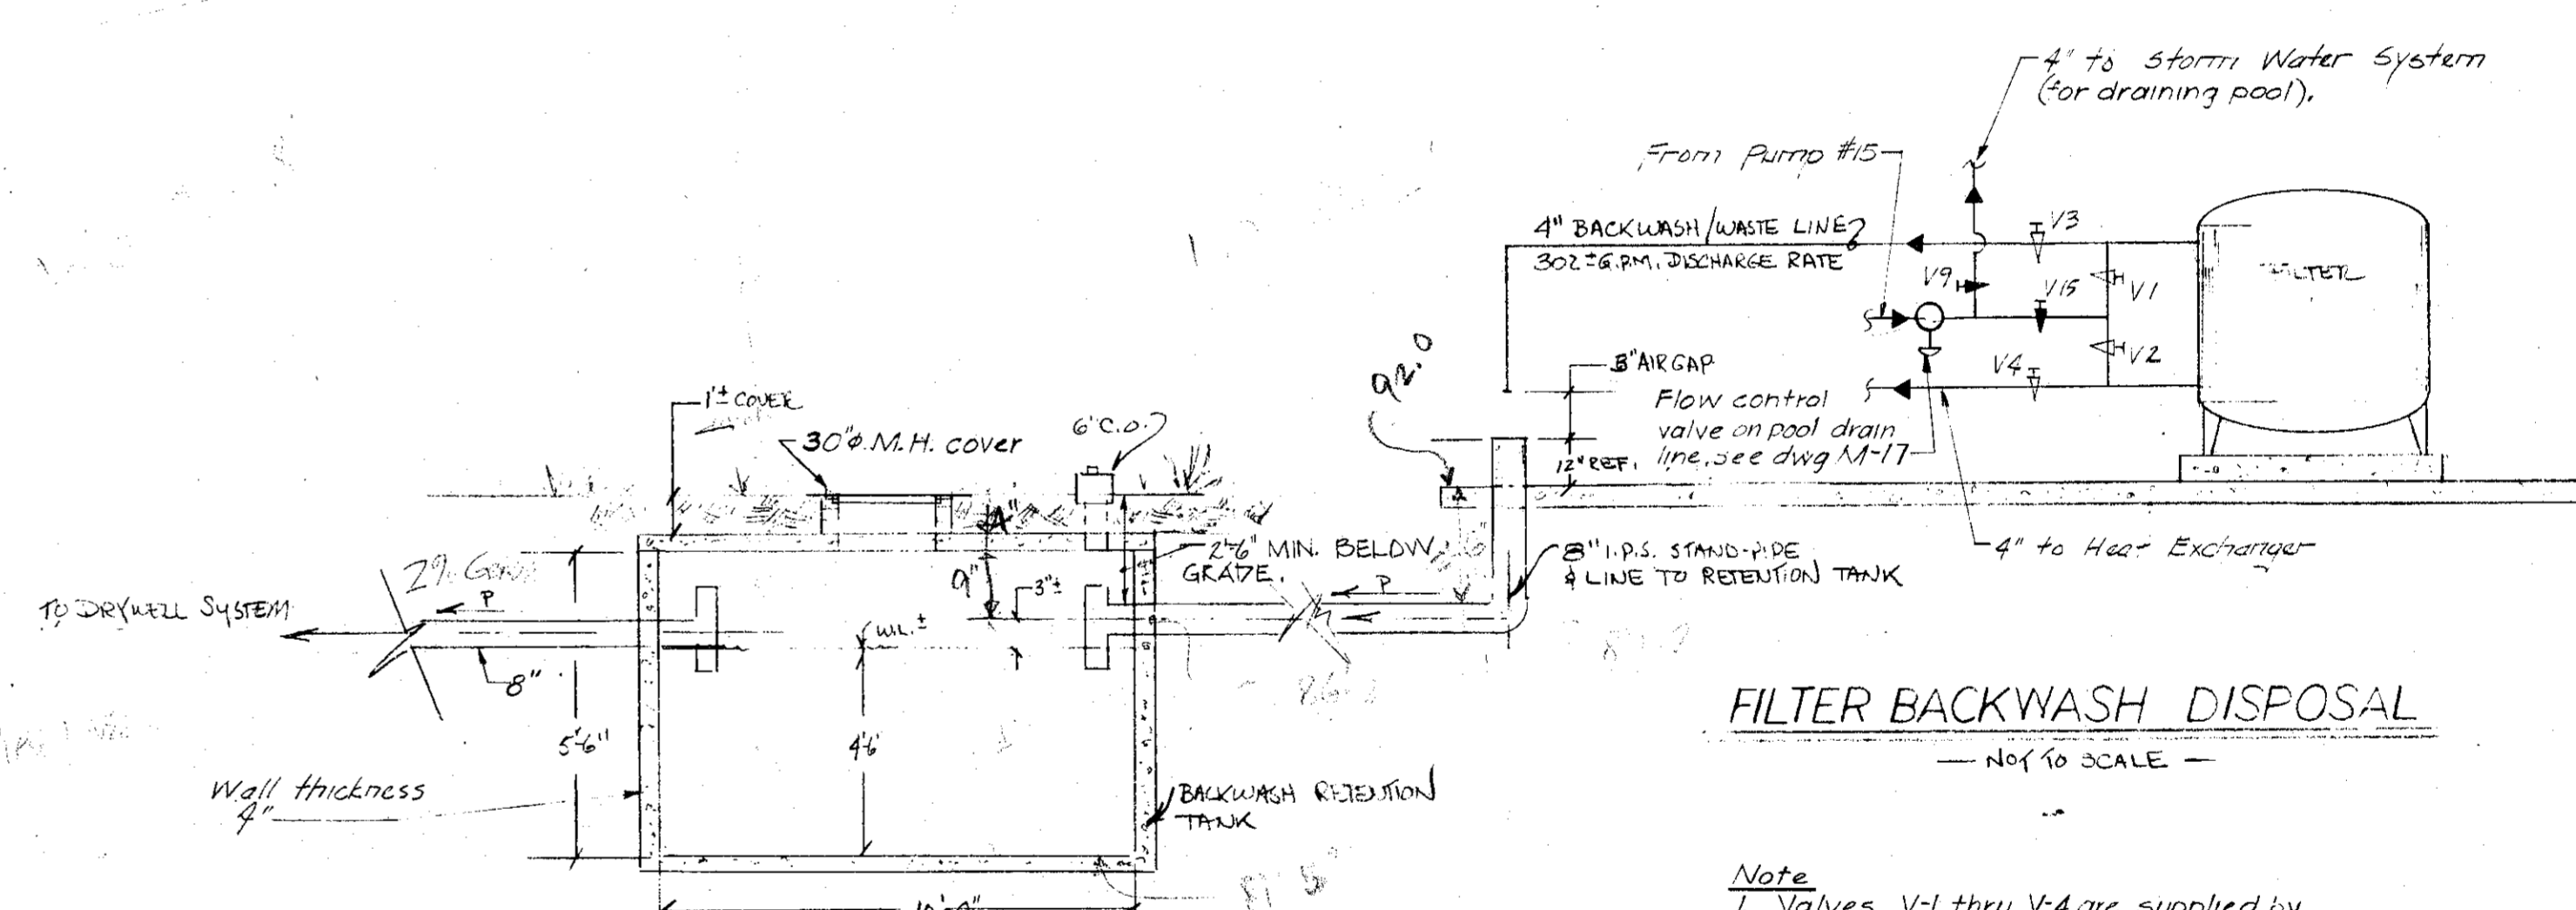 4" to Storm Water System
(for draining pool).
From Pump #15
4" BACKWASH/WASTE LINE
302± G.P.M. DISCHARGE RATE
V3
V9
V15
V1
FILTER
V2
V4
3" AIR GAP
92.0
Flow control
valve on pool drain
line, see dwg M-17
12" REF.
1'± COVER
30"φ M.H. cover
6" C.O.
4"
2'-6" MIN. BELOW
GRADE.
9"
3"±
8" I.P.S. STAND-PIPE
& LINE TO RETENTION TANK
4" to Heat Exchanger
TO DRYWELL SYSTEM
P
P
W.L. ±
8"
5'-6"
4'-6"
Wall thickness
4"
BACKWASH RETENTION
TANK
FILTER BACKWASH DISPOSAL
— NOT TO SCALE —
Note
1. Valves V-1 thru V-4 are supplied by